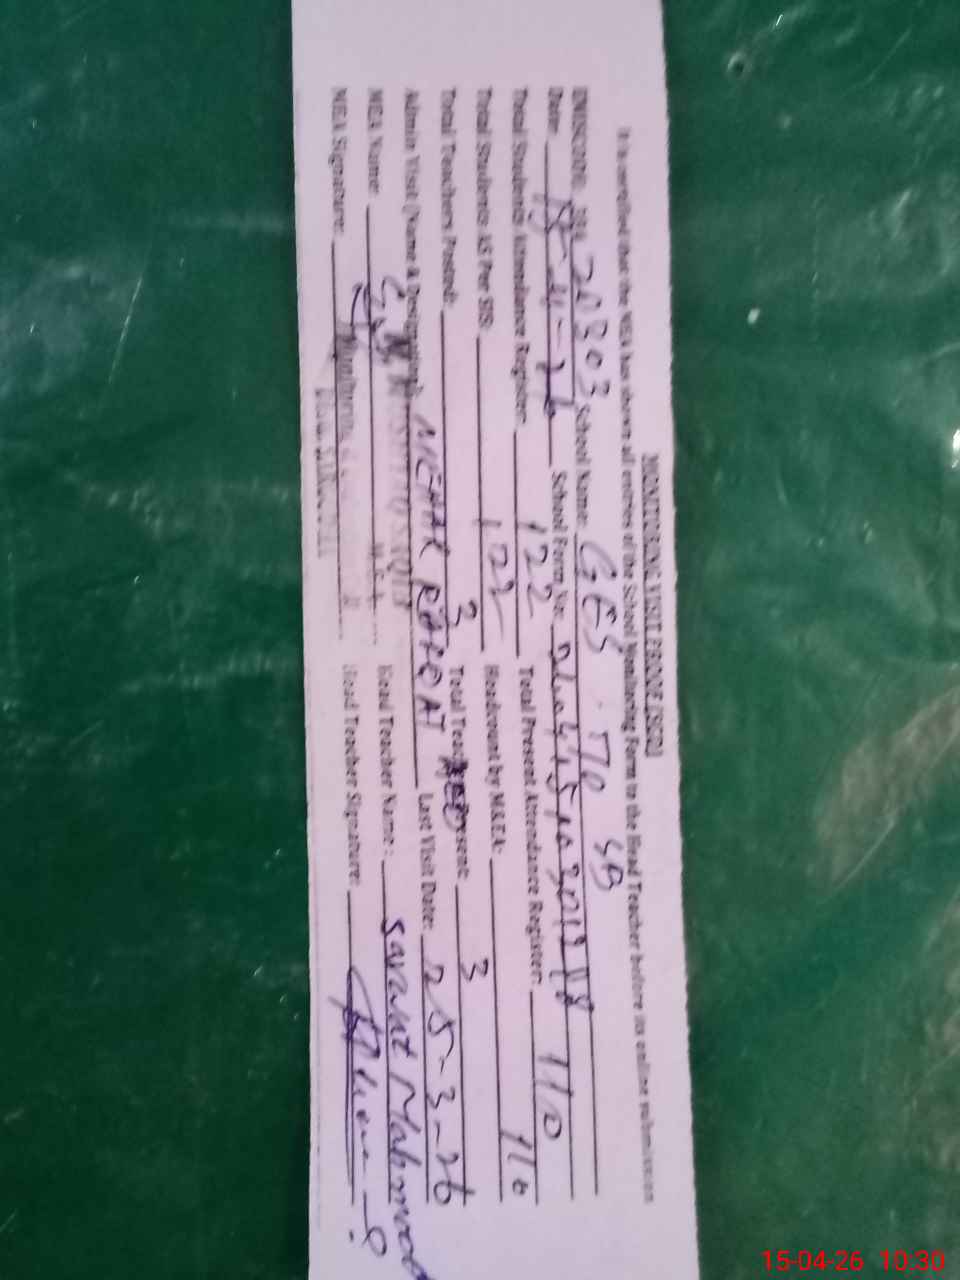 MONITORING VISIT PROOF (SCQ)
It is certified that the MEA has shown all entries of the School Monitoring Form to the Head Teacher before its online submission
EMISCODE: 384 20303 School Name: GES 170 SB
Date: 15-4-26 School Form No:
Total Students' Attendance Register: 122 Total Present Attendance Register: 110
Total Students AS Per SIS: 122 Headcount by M&EA: 110
Total Teachers Posted: 3 Total Teachers Present: 3
Admin Visit (Name & Designation): MEHAR RAFAQAT AEO Last Visit Date: 25-3-26
MEA Name: Head Teacher Name: Sarwat Mahmood
MEA Signature: Head Teacher Signature:
15-04-26 10:30